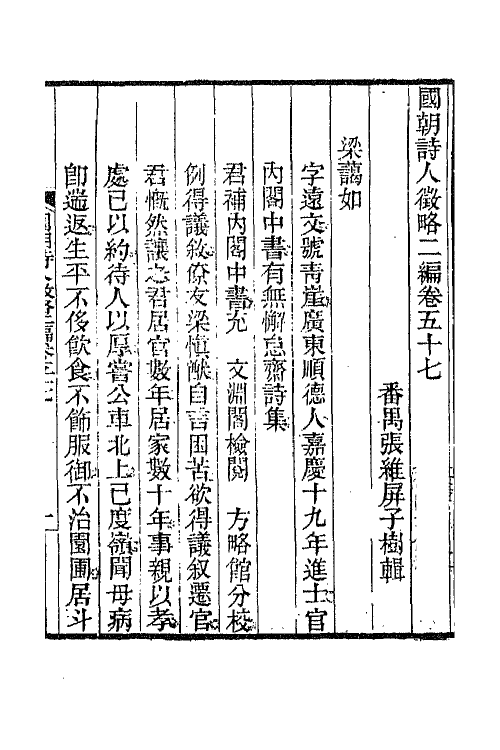 國朝詩人徵略二編卷五十七
番禺張維屏子樹輯
梁藹如
字遠文號靑崖廣東順德人嘉慶十九年進士官
內閣中書有無懈怠齋詩集
君補內閣中書充 文淵閣檢閱 方略館分校
例得議敘僚友梁慎猷自言困苦欲得議叙遷官
君慨然讓之君居官數年居家數十年事親以孝
處己以約待人以厚嘗公車北上已度嶺聞母病
卽遄返生平不侈飮食不飾服御不治園圃居斗